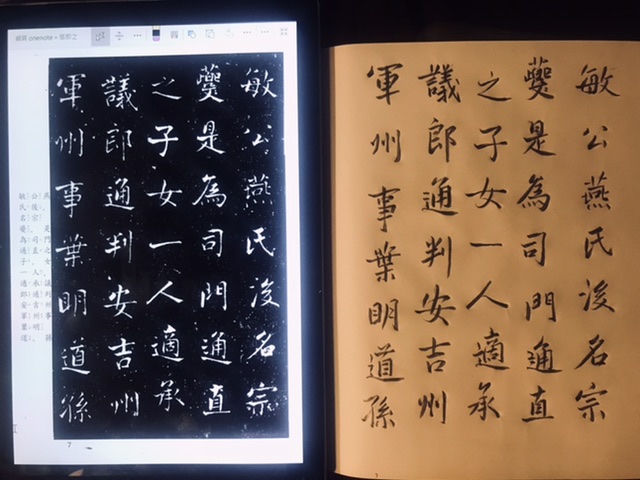 onenote
敏公燕氏後名宗
夔是為司門通直
之子女一人適承
議郎通判安吉州
軍州事葉明道孫
7
敏公燕氏後名宗
夔是為司門通直
之子女一人適承
議郎通判安吉州
軍州事葉明道孫